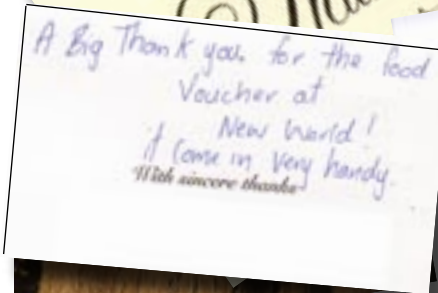 A Big Thank you. for the food
Voucher at
New World!
it Come in Very handy.
With sincere thanks